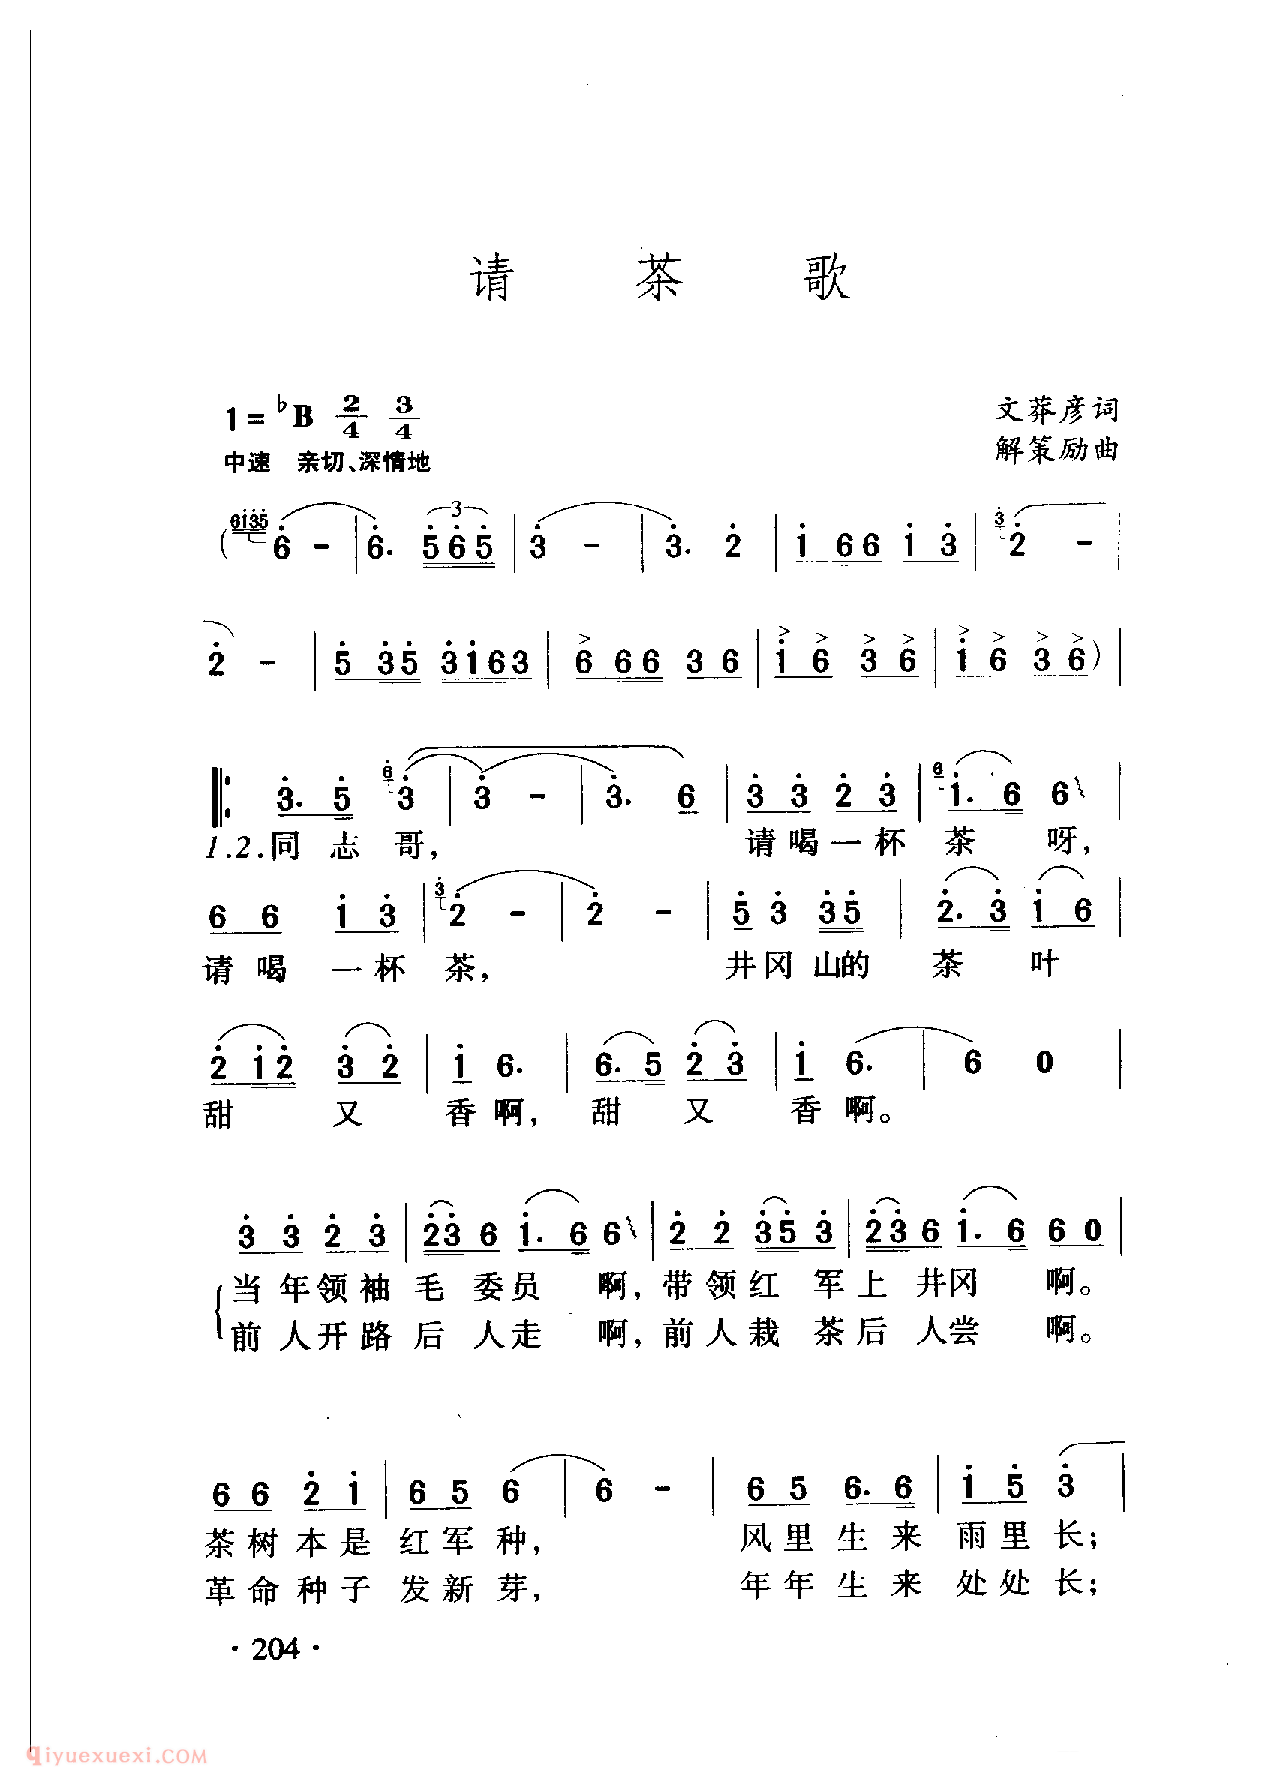 请茶歌
1=♭B 2/4 3/4
文莽彦词
中速 亲切、深情地
解策励曲
(6135 6 - | 6. 565 | 3 - | 3. 2 | 1 66 1 3 | 3 2 - |
2 - | 5 35 3163 | 6 66 3 6 | 1 6 3 6 | 1 6 3 6) |
‖: 3. 5 6 3 | 3 - | 3. 6 | 3 3 2 3 | 6 1. 6 6 |
1.2.同志哥, 请喝一杯茶呀,
6 6 1 3 | 3 2 - | 2 - | 5 3 35 | 2. 3 1 6 |
请喝一杯茶, 井冈山的茶叶
2 12 3 2 | 1 6. | 6. 5 2 3 | 1 6. | 6 0 |
甜又香啊, 甜又香啊。
3 3 2 3 | 23 6 1. 6 6 | 2 2 35 3 | 23 6 1. 6 6 0 |
当年领袖毛委员啊,带领红军上井冈啊。
前人开路后人走啊,前人栽茶后人尝啊。
6 6 2 1 | 6 5 6 | 6 - | 6 5 6. 6 | 1 5 3 |
茶树本是红军种, 风里生来雨里长;
革命种子发新芽, 年年生来处处长;
· 204 ·
qiyuexuexi.COM